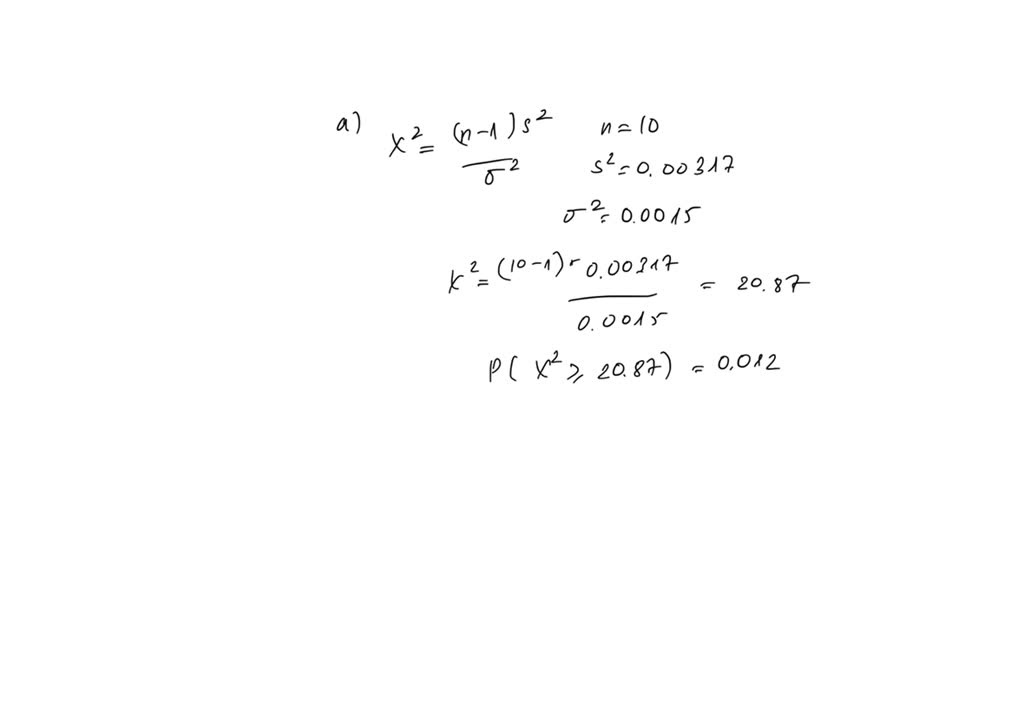 a) x² = (n-1)s² / σ² n = 10
s² = 0.00317
σ² = 0.0015
x² = (10-1) · 0.00317 / 0.0015 = 20.87
P( x² ≥ 20.87) = 0.012